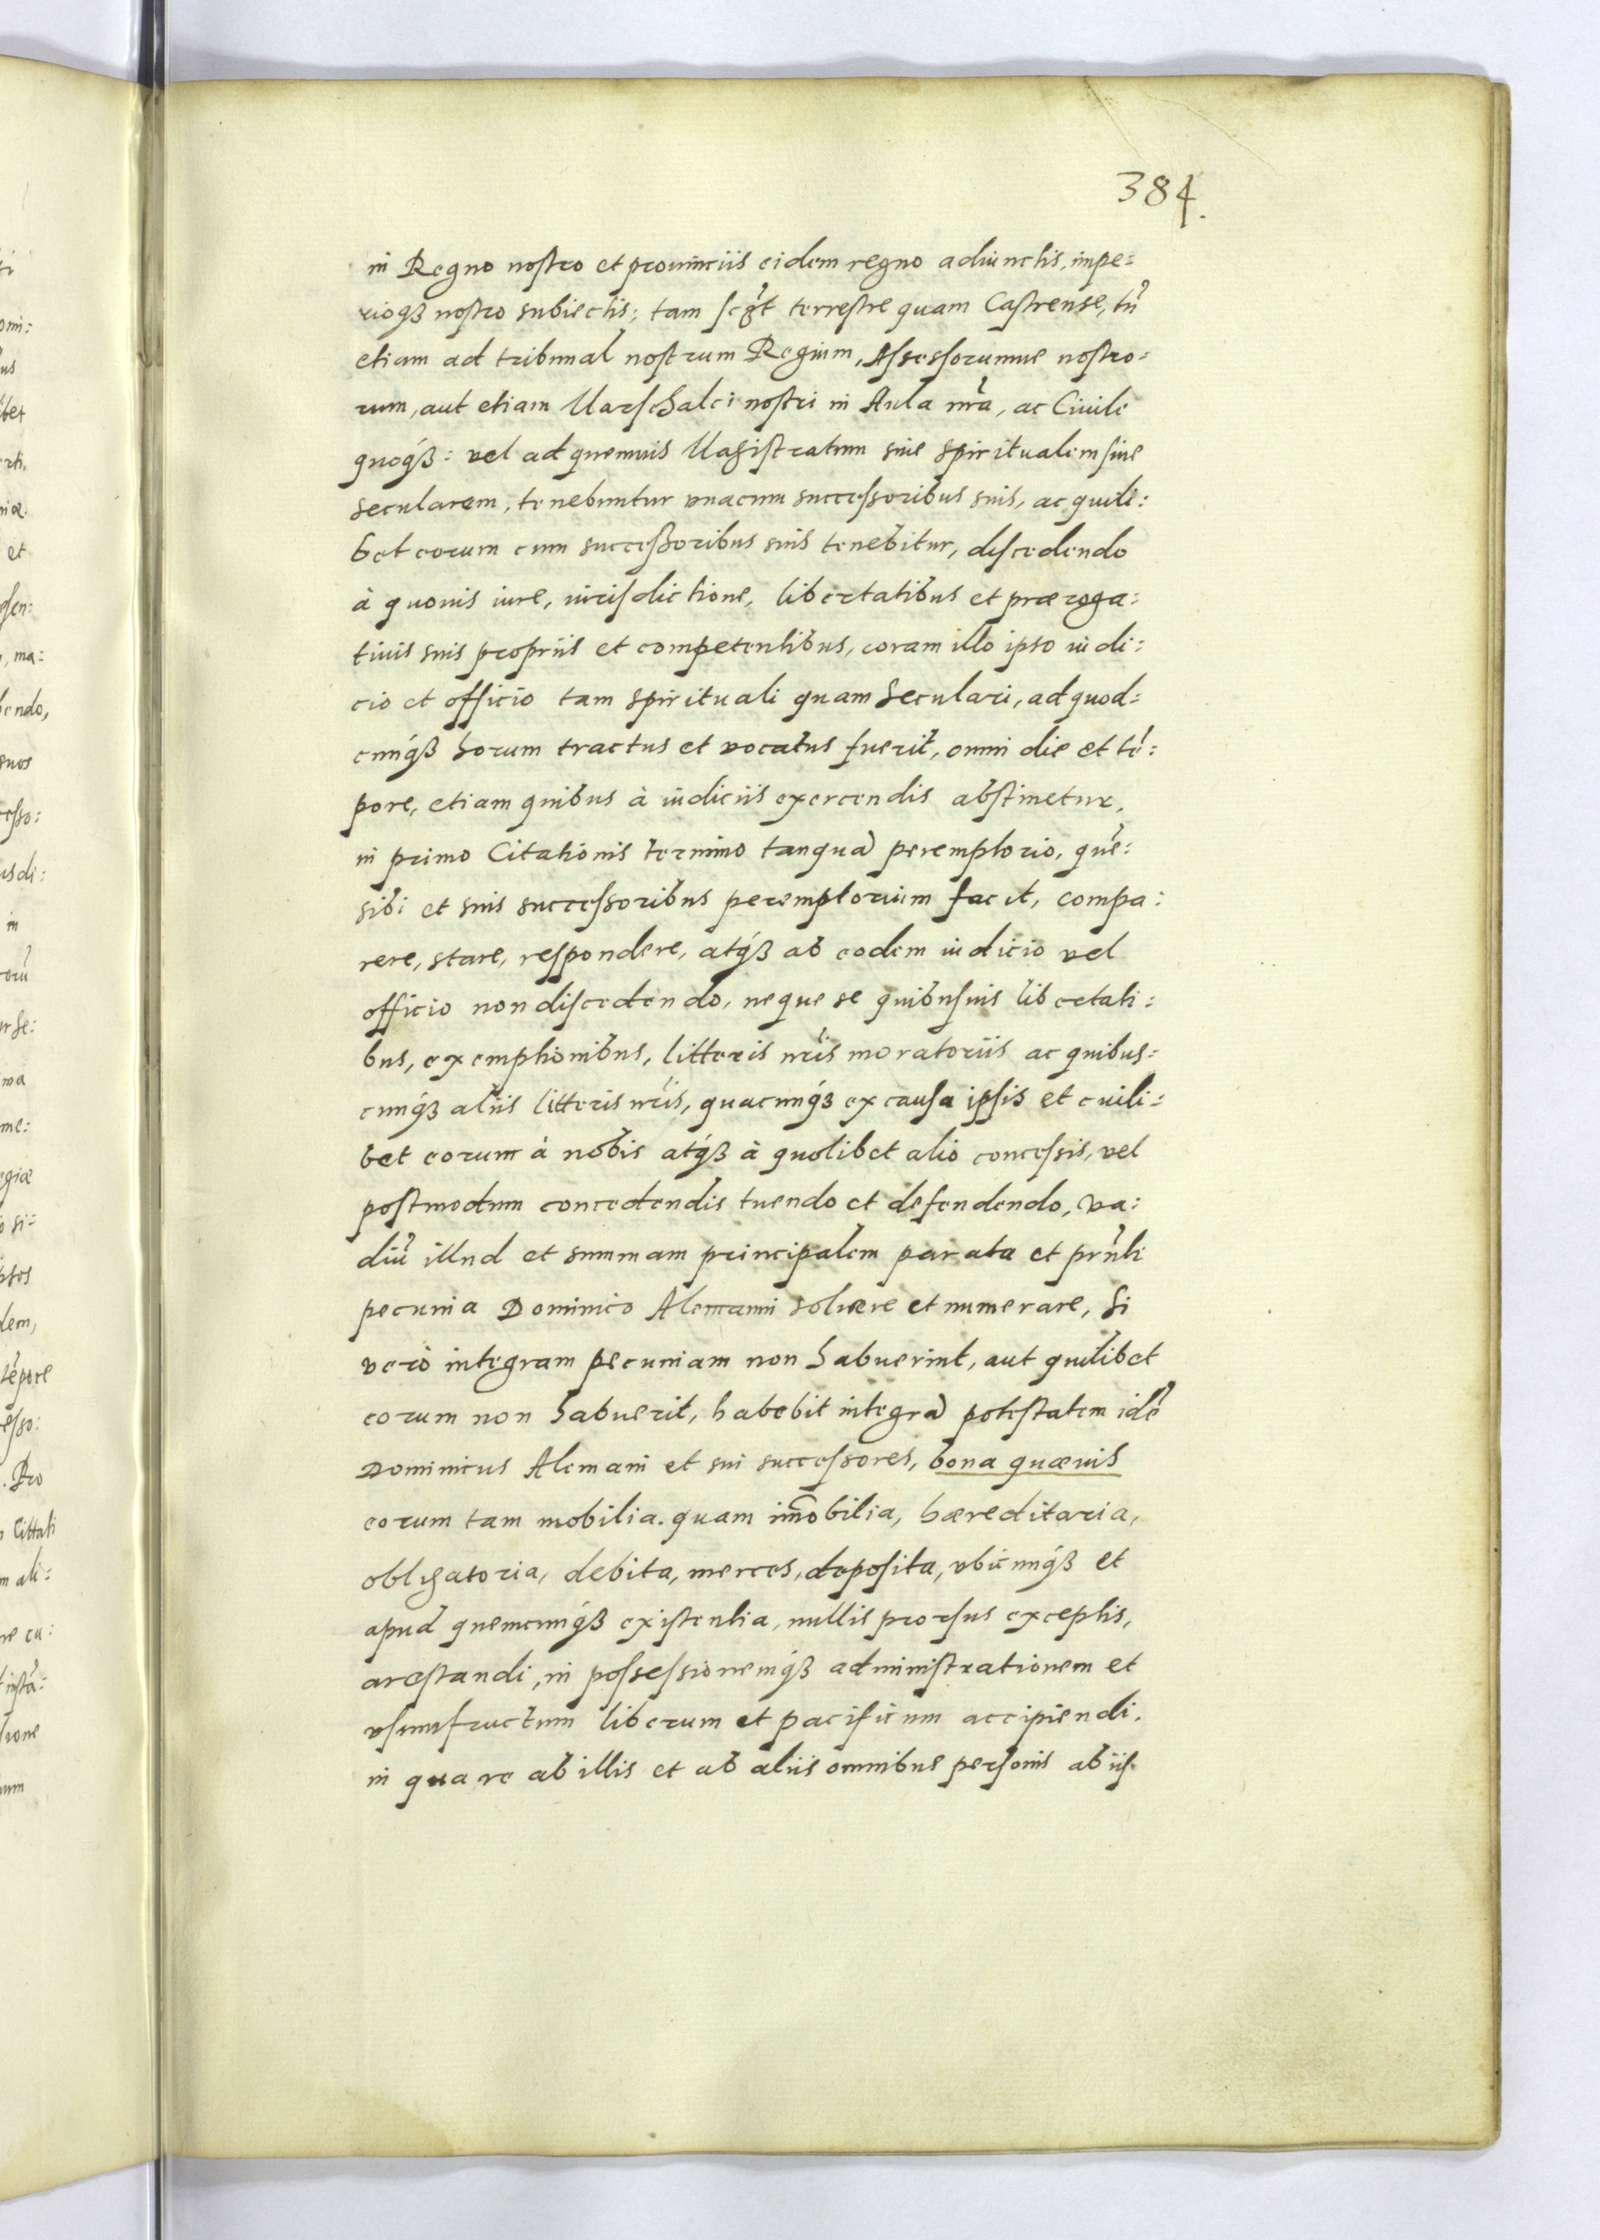 384.
in Regno nostro et prouinciis eidem regno adiunctis, impe:
rioqꝫ nostro subiectis; tam terrestre quam Castrense, tũ
etiam ad tribunal nostrum Regium, Assessorumue nostro:
rum, aut etiam Marschalci nostri in Aula nr̃a, ac Ciuile
quoqꝫ: vel ad quemuis Magistratum siue spiritualem siue
secularem, tenebuntur vnacum successoribus suis, ac quili:
bet eorum cum successoribus suis tenebitur, discedendo
à quouis iure, iurisdictione, libertatibus et præroga:
tiuis suis propriis et competentibus, coram illo ipso iudi:
cio et officio tam spirituali quam seculari, ad quod:
cunqꝫ horum tractus et vocatus fuerit, omni die et tẽ:
pore, etiam quibus à iudiciis exercendis abstinetur,
in primo Citationis termino tanquã peremptorio, quẽ:
sibi et suis successoribus peremptorium facit, compa:
rere, stare, respondere, atqꝫ ab eodem iudicio vel
officio non discedendo, neque se quibusuis libertati:
bus, exemptionibus, litteris nr̃is moratoriis ac quibus:
cunqꝫ aliis litteris nr̃is, quacunqꝫ ex causa ipsis et cuili:
bet eorum à nobis atqꝫ à quolibet alio concessis, vel
postmodum concedendis tuendo et defendendo, va:
diũ illud et summam principalem parata et prñti
pecunia Dominico Alemanni soluere et numerare, Si
verò integram pecuniam non habuerint, aut quilibet
eorum non habuerit, habebit integrã potestatem idẽ
Dominicus Alemani et sui successores, bona quæuis
eorum tam mobilia. quam im̃obilia, hæreditaria,
obligatoria, debita, merces, deposita, vbicunqꝫ et
apud quemcunqꝫ existentia, nullis prorsus exceptis,
arestandi, in possessionemqꝫ administrationem et
vsumfructum liberum et pacificum accipiendi.
in qua re ab illis et ab aliis omnibus personis ab iis